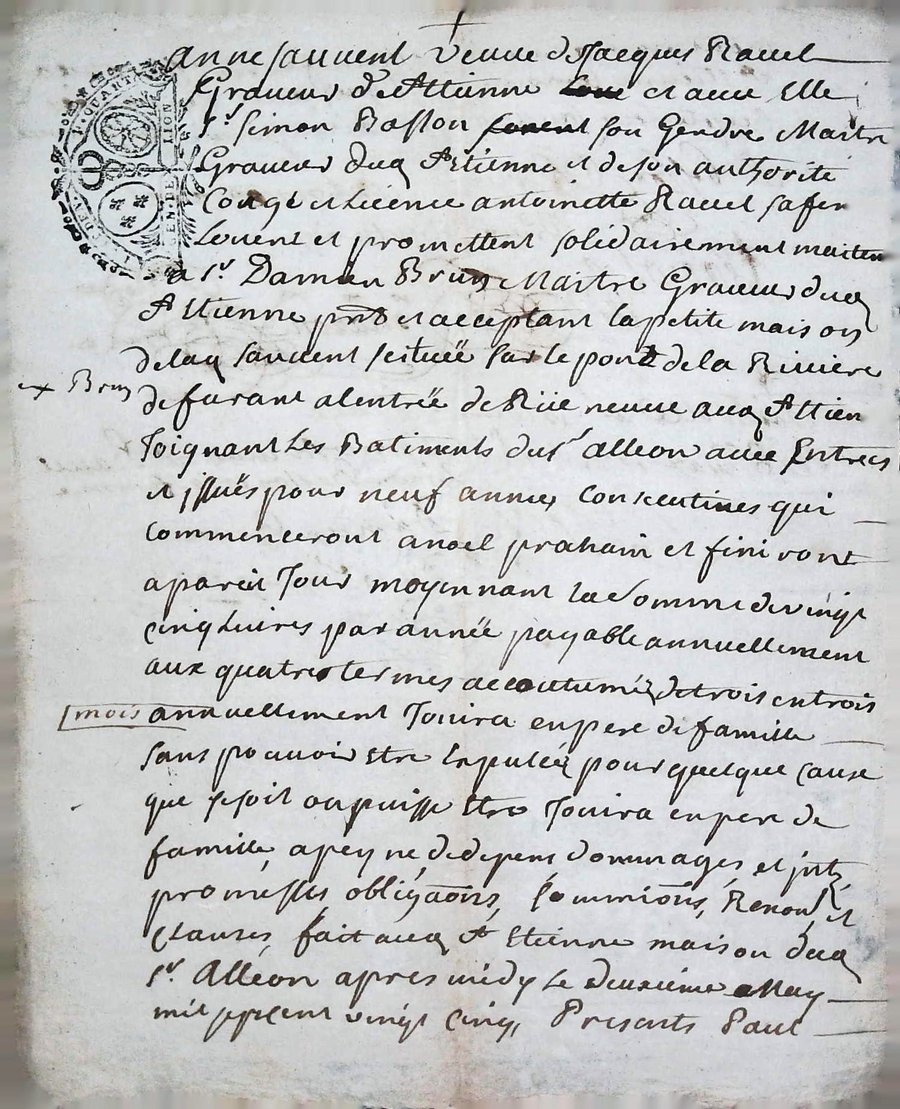 +
anne sauvent veuve de Jacques Ravel
Graveur de St Etienne et avec Elle
Sr simon Basson son Gendre Maitre
Graveur dud St Etienne et de son authorité
Congé et Licence antoinette Ravel sa fem
Louent et promettent solidairement mainten
a Sr Damien Brun Maitre Graveur dud
St Etienne pnt et acceptant la petite maison
delad sauvent scituëe sur le pont de la Riviere
x Brun
de furant alentrëe de Rüe neuve aud St Etien
Joignant Les Batiments du Sr alleon avec Entrees
et jssuës pour neuf années Consecutives qui
commenceront a noel prohain et finiront
apareil Jour moyennant la somme de vingt
cinq Livres par annëe payable annuellement
aux quatre termes accoutumés de trois en trois
mois annuellement Jouira en pere de famille
sans pouvoir Etre Expulsée pour quelque cause
que se soit ou puisse Etre Jouira en pere de
famille, a peyne de depens dommages et jnts
promesses obligaons, soummions, Renons, et
Clauses, fait aud St Etienne maison dud
Sr Alléon apres midy Le deuxiéme May
mil sept cent vingt cinq, Presents Paul
P. QUART
GEN. DE LION